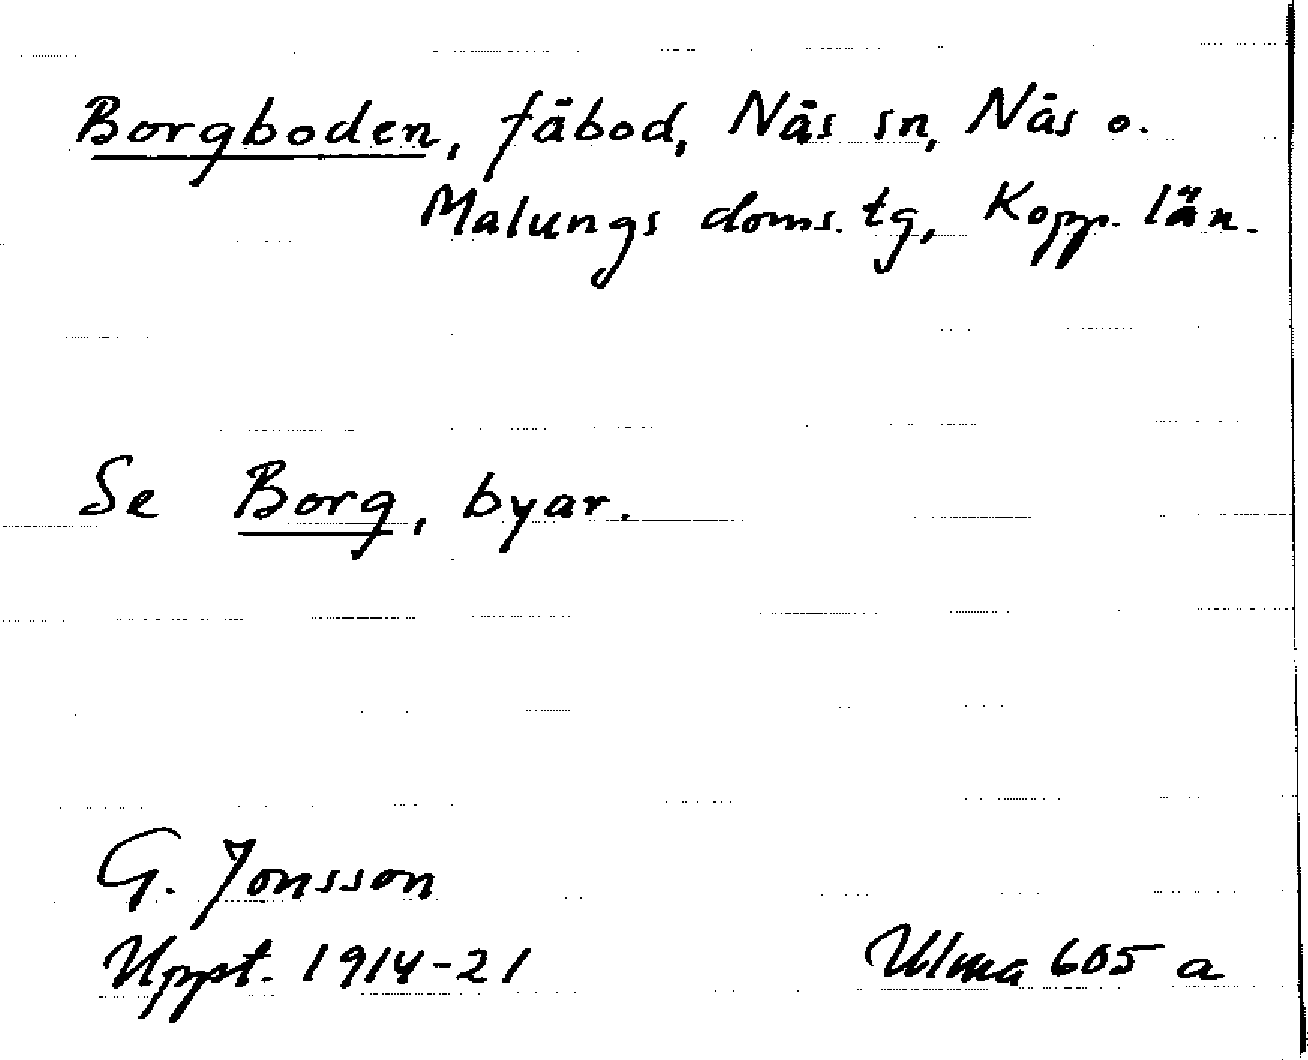 Borgboden, fäbod, Näs sn, Nås o.
Malungs doms. tg, Kopp. län.
Se Borg, byar.
G. Jonsson
Uppt. 1914-21 Ulma 605 a